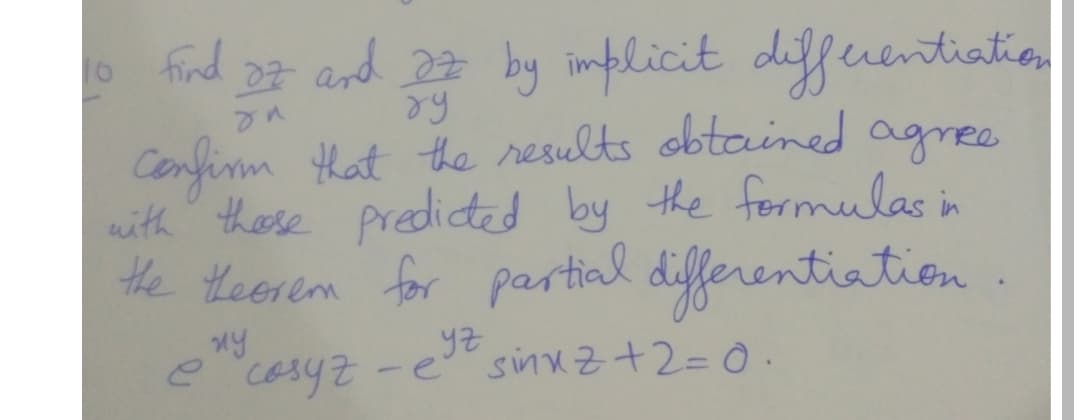 10 find ∂z/∂x and ∂z/∂y by implicit differentiation
Confirm that the results obtained agree
with those predicted by the formulas in
the theorem for partial differentiation.
e^{xy} cosyz - e^{yz} sinxz + 2 = 0.